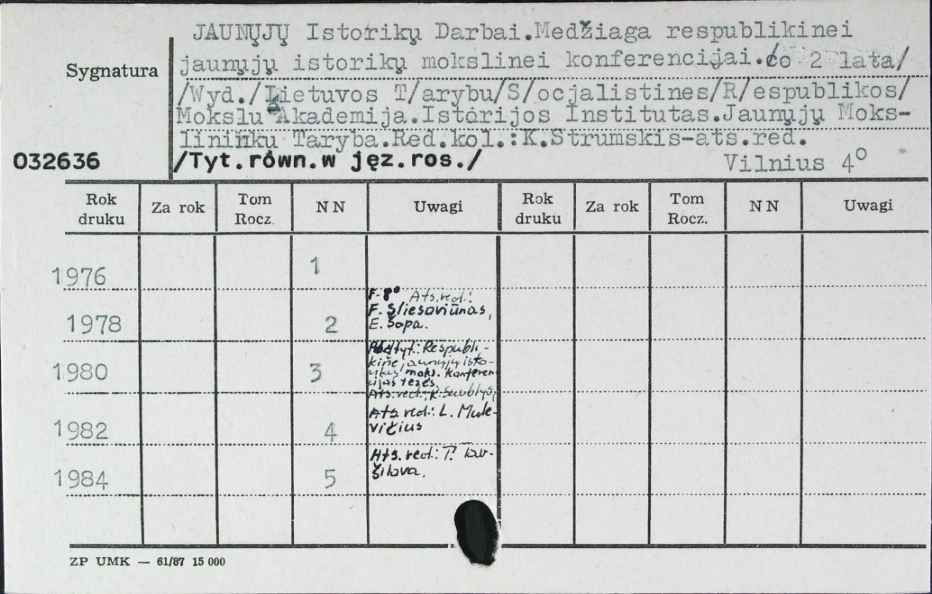 JAUNŲJŲ Istorikų Darbai.Medžiaga respublikinei
Sygnatura
jaunųjų istorikų mokslinei konferencijai./co 2 lata/
/Wyd./Lietuvos T/arybu/S/ocjalistines/R/espublikos/
Mokslu Akademija.Istorijos Institutas.Jaunųjų Moks-
lininku Taryba.Red.kol.:K.Strumskis-ats.red.
032636
/Tyt.równ.w jęz.ros./
Vilnius 4°
Rok druku Za rok Tom Rocz. NN Uwagi Rok druku Za rok Tom Rocz. NN Uwagi
1976 1
F-8° Ats.red.:
F. Sliesoriūnas,
1978 2 E. Šopa.
Podtyt.: Respubli-
kinė jaunųjų isto-
1980 3 rikų moks. konferen-
cijos tezės.
Ats.red.:
Ats.red.: L. Mule-
1982 4 vičius
Ats.red.: P.
1984 5
ZP UMK — 61/87 15 000